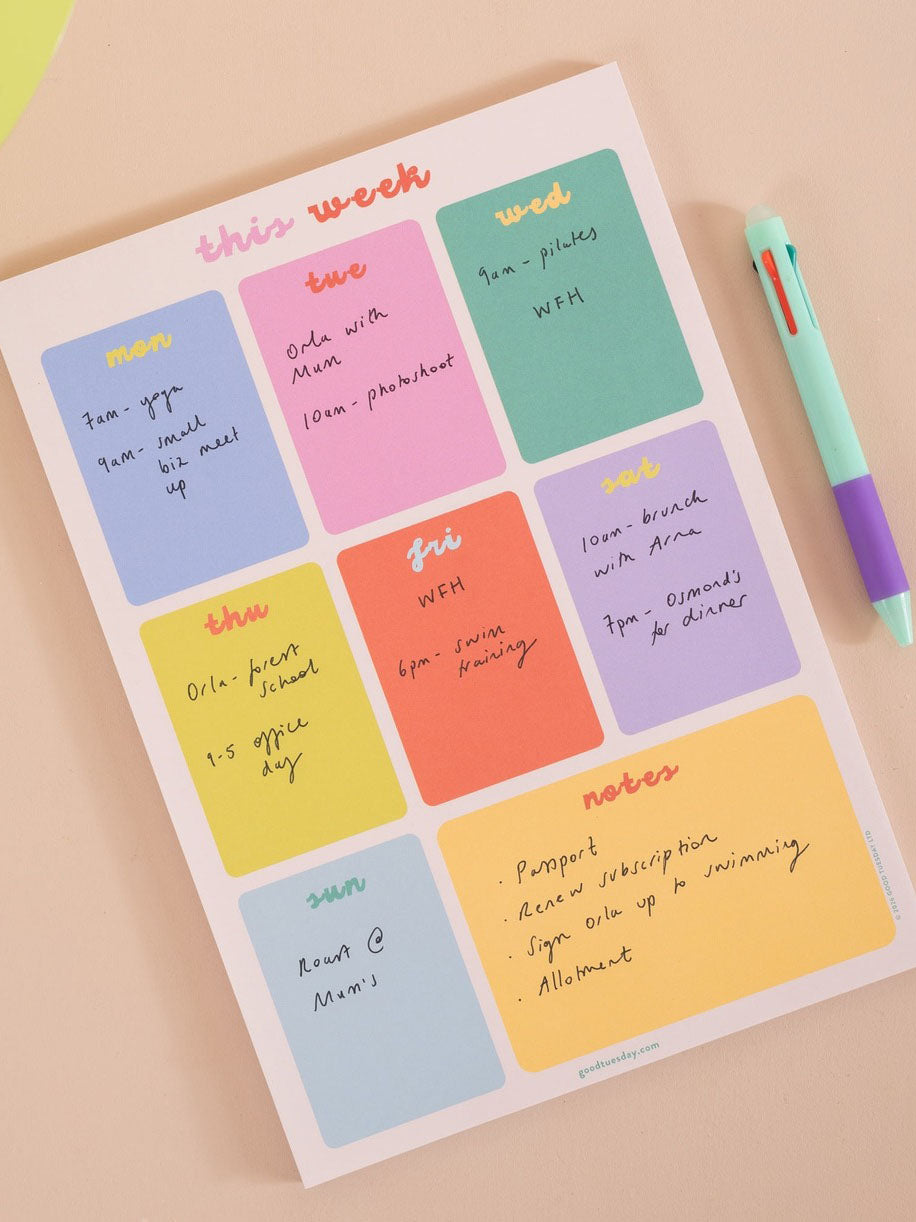 this week
mon
7am - yoga
9am - small
biz meet
up
tue
Orla with
Mum
10am - photoshoot
wed
9am - pilates
WFH
thu
Orla - forest
school
9-5 office
day
fri
WFH
6pm - swim
training
sat
10am - brunch
with Anna
7pm - Osmond's
for dinner
sun
Roast @
Mum's
notes
· Passport
· Renew subscription
· Sign Orla up to swimming
· Allotment
goodtuesday.com
© 2024 GOOD TUESDAY LTD